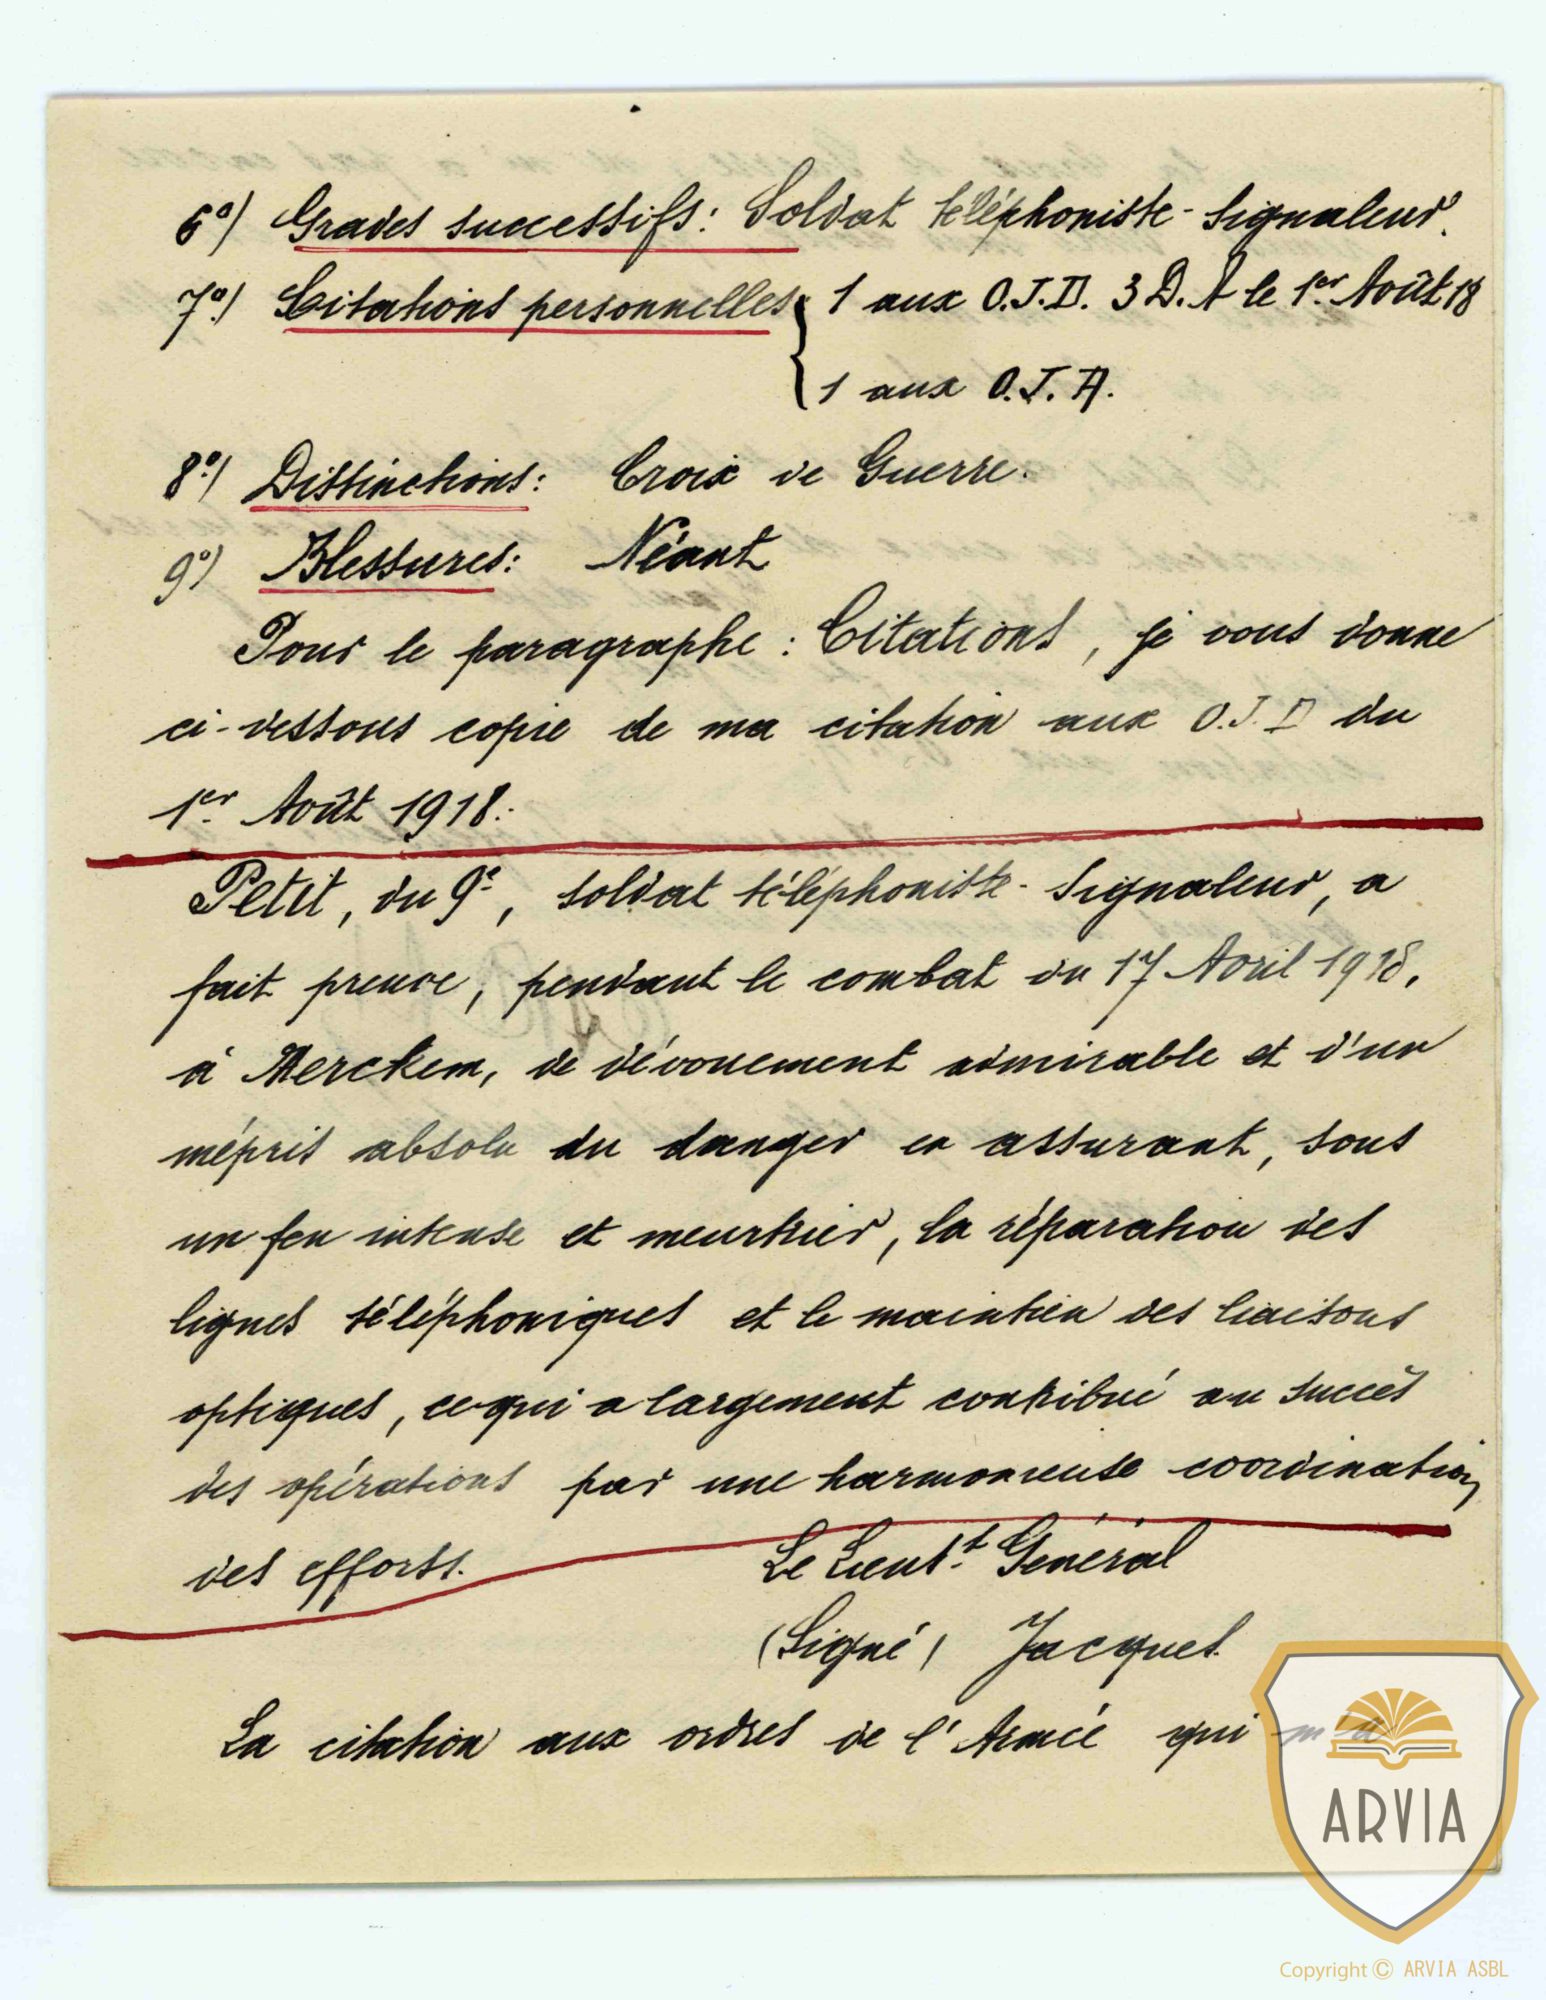 6º) Grades successifs: Soldat téléphoniste-signaleur.
7º) Citations personnelles 1 aux O.J.D. 3 D.A le 1er Août 18
1 aux O.J.A.
8º) Distinctions: Croix de Guerre.
9º) Blessures: Néant
Pour le paragraphe: Citations, je vous donne
ci-dessous copie de ma citation aux O.J.D du
1er Août 1918:
Petit, du 9e, soldat téléphoniste-signaleur, a
fait preuve, pendant le combat du 17 Avril 1918,
à Merckem, de dévouement admirable et d'un
mépris absolu du danger en assurant, sous
un feu intense et meurtrier, la réparation des
lignes téléphoniques et le maintien des liaisons
optiques, ce qui a largement contribué au succès
des opérations par une harmonieuse coordination
des efforts.
Le Lieut.t Général
(Signé) Jacques.
La citation aux ordres de l'Armée qui m'a
ARVIA
Copyright © ARVIA ASBL